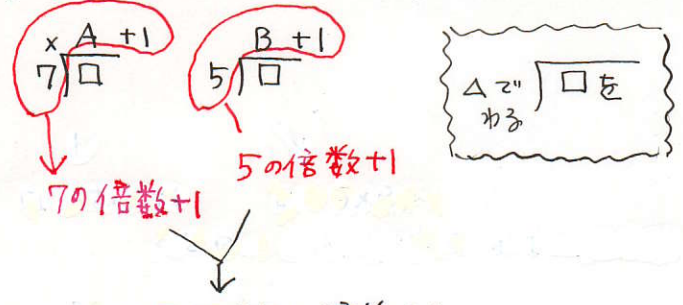 × A +1
7) □
B +1
5) □
△で
わる
□を
5の倍数+1
7の倍数+1